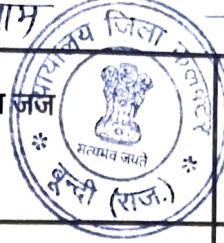 नाम
जज
न्यायालय जिला कलक्टर
सत्यमेव जयते
बून्दी (राज.)